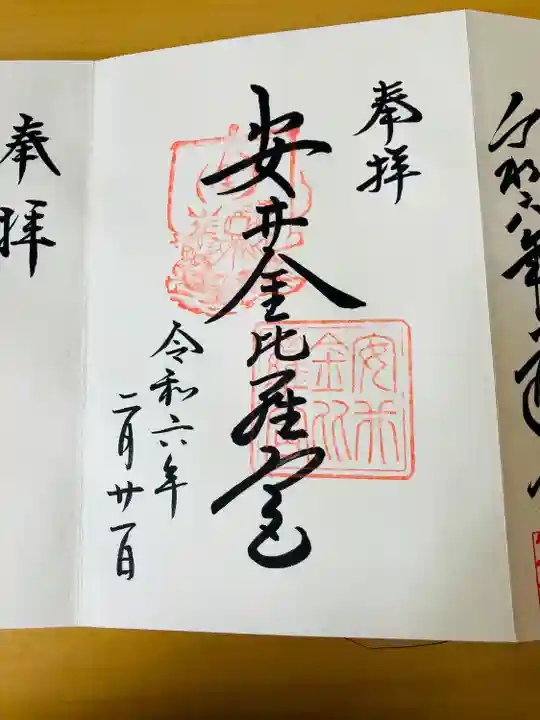 奉拝
安井金比羅宮
令和六年
二月廿一日
奉拝